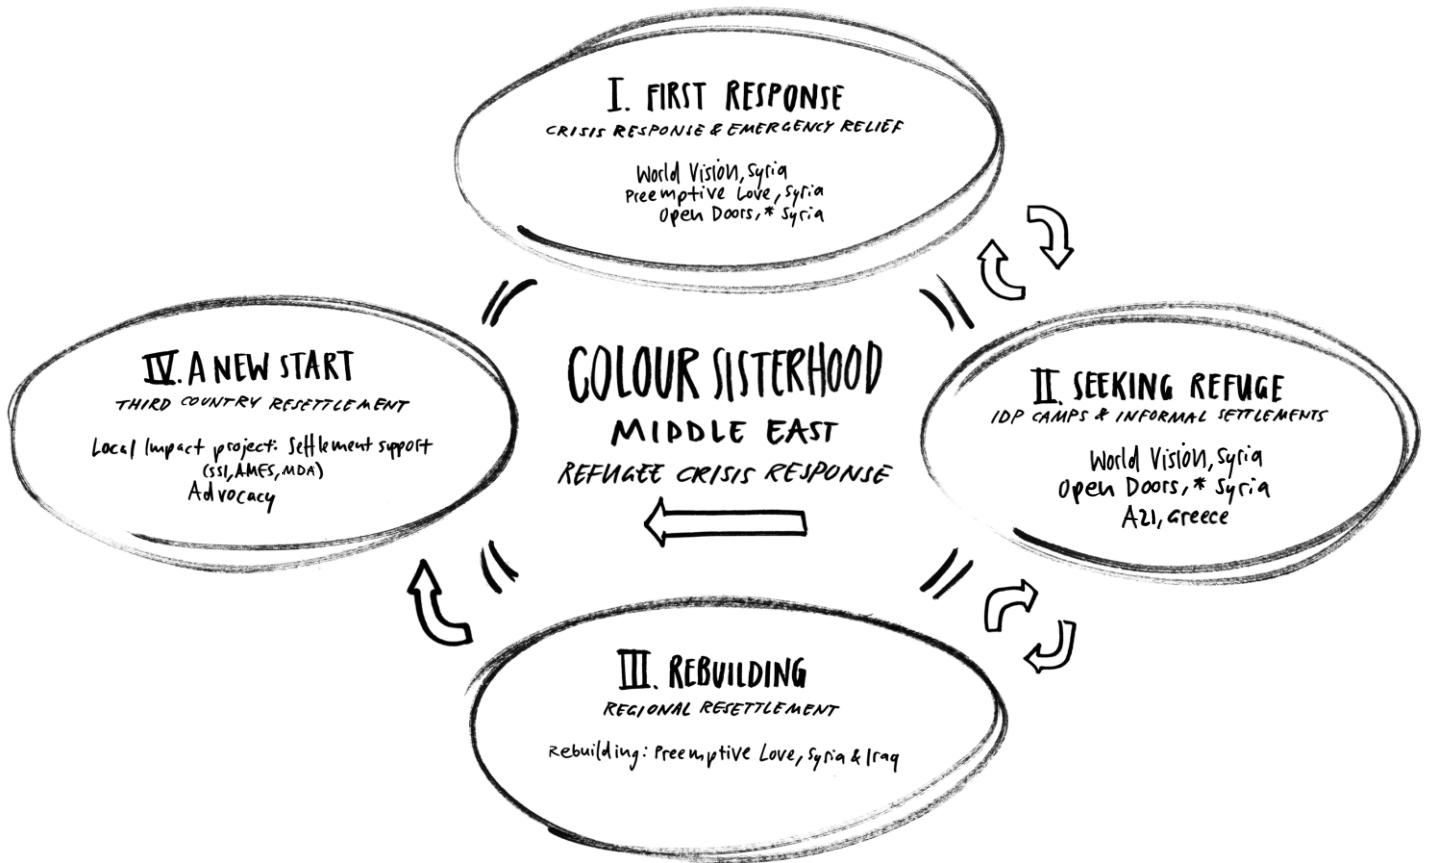 I. FIRST RESPONSE
CRISIS RESPONSE & EMERGENCY RELIEF
World Vision, Syria
Preemptive Love, Syria
Open Doors, * Syria
IV. A NEW START
THIRD COUNTRY RESETTLEMENT
Local Impact project: Settlement support
(SSI, AMES, MDA)
Advocacy
COLOUR SISTERHOOD
MIDDLE EAST
REFUGEE CRISIS RESPONSE
II. SEEKING REFUGE
IDP CAMPS & INFORMAL SETTLEMENTS
World Vision, Syria
Open Doors, * Syria
A21, Greece
III. REBUILDING
REGIONAL RESETTLEMENT
Rebuilding: Preemptive Love, Syria & Iraq